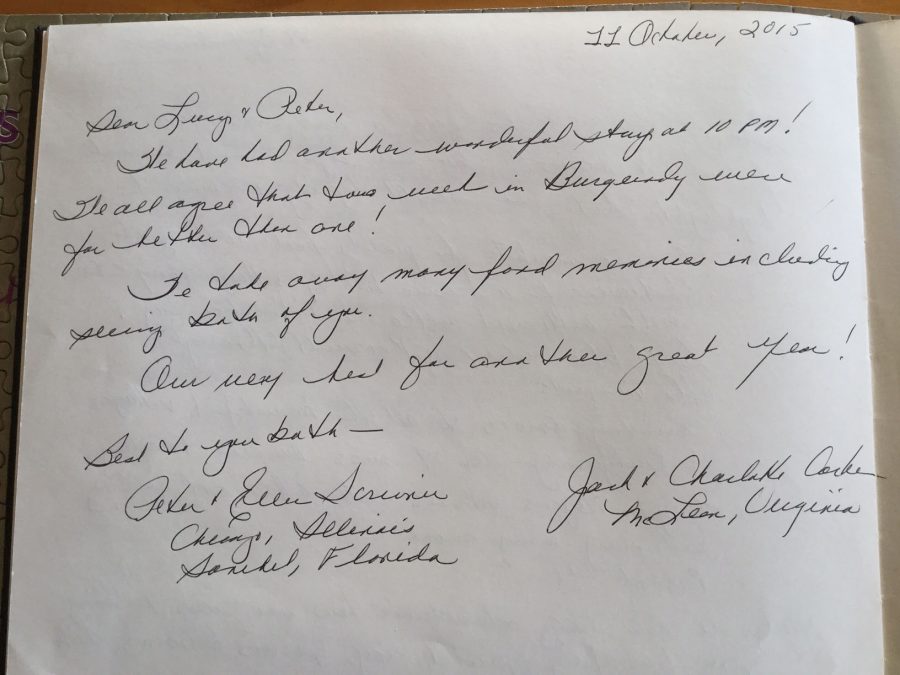 11 October, 2015
Dear Lucy & Peter,
We have had another wonderful stay at 10 PM!
We all agree that two week in Burgundy were
far better than one!
We take away many fond memories including
seeing both of you.
Our very best for another great year!
Best to you both —
Peter & Ellen Scrivner
Chicago, Illinois
Sanibel, Florida
Jack & Charlotte
McLean, Virginia